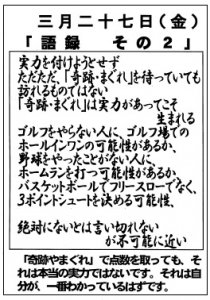 三月二十七日(金)
「語録　その2」
実力を付けようとせず
ただただ、「奇跡・まぐれ」を待っていても
訪れるものではない
「奇跡・まぐれ」は実力があってこそ
生まれる
ゴルフをやらない人に、ゴルフ場での
ホールインワンの可能性があるか、
野球をやったことがない人に、
ホームランを打つ可能性があるか、
バスケットボールでフリースローでなく、
3ポイントシュートを決める可能性、
絶対にないとは言い切れない
が不可能に近い
「奇跡やまぐれ」で点数を取っても、そ
れは本当の実力ではないです。それは自
分が、一番わかっているはずです。